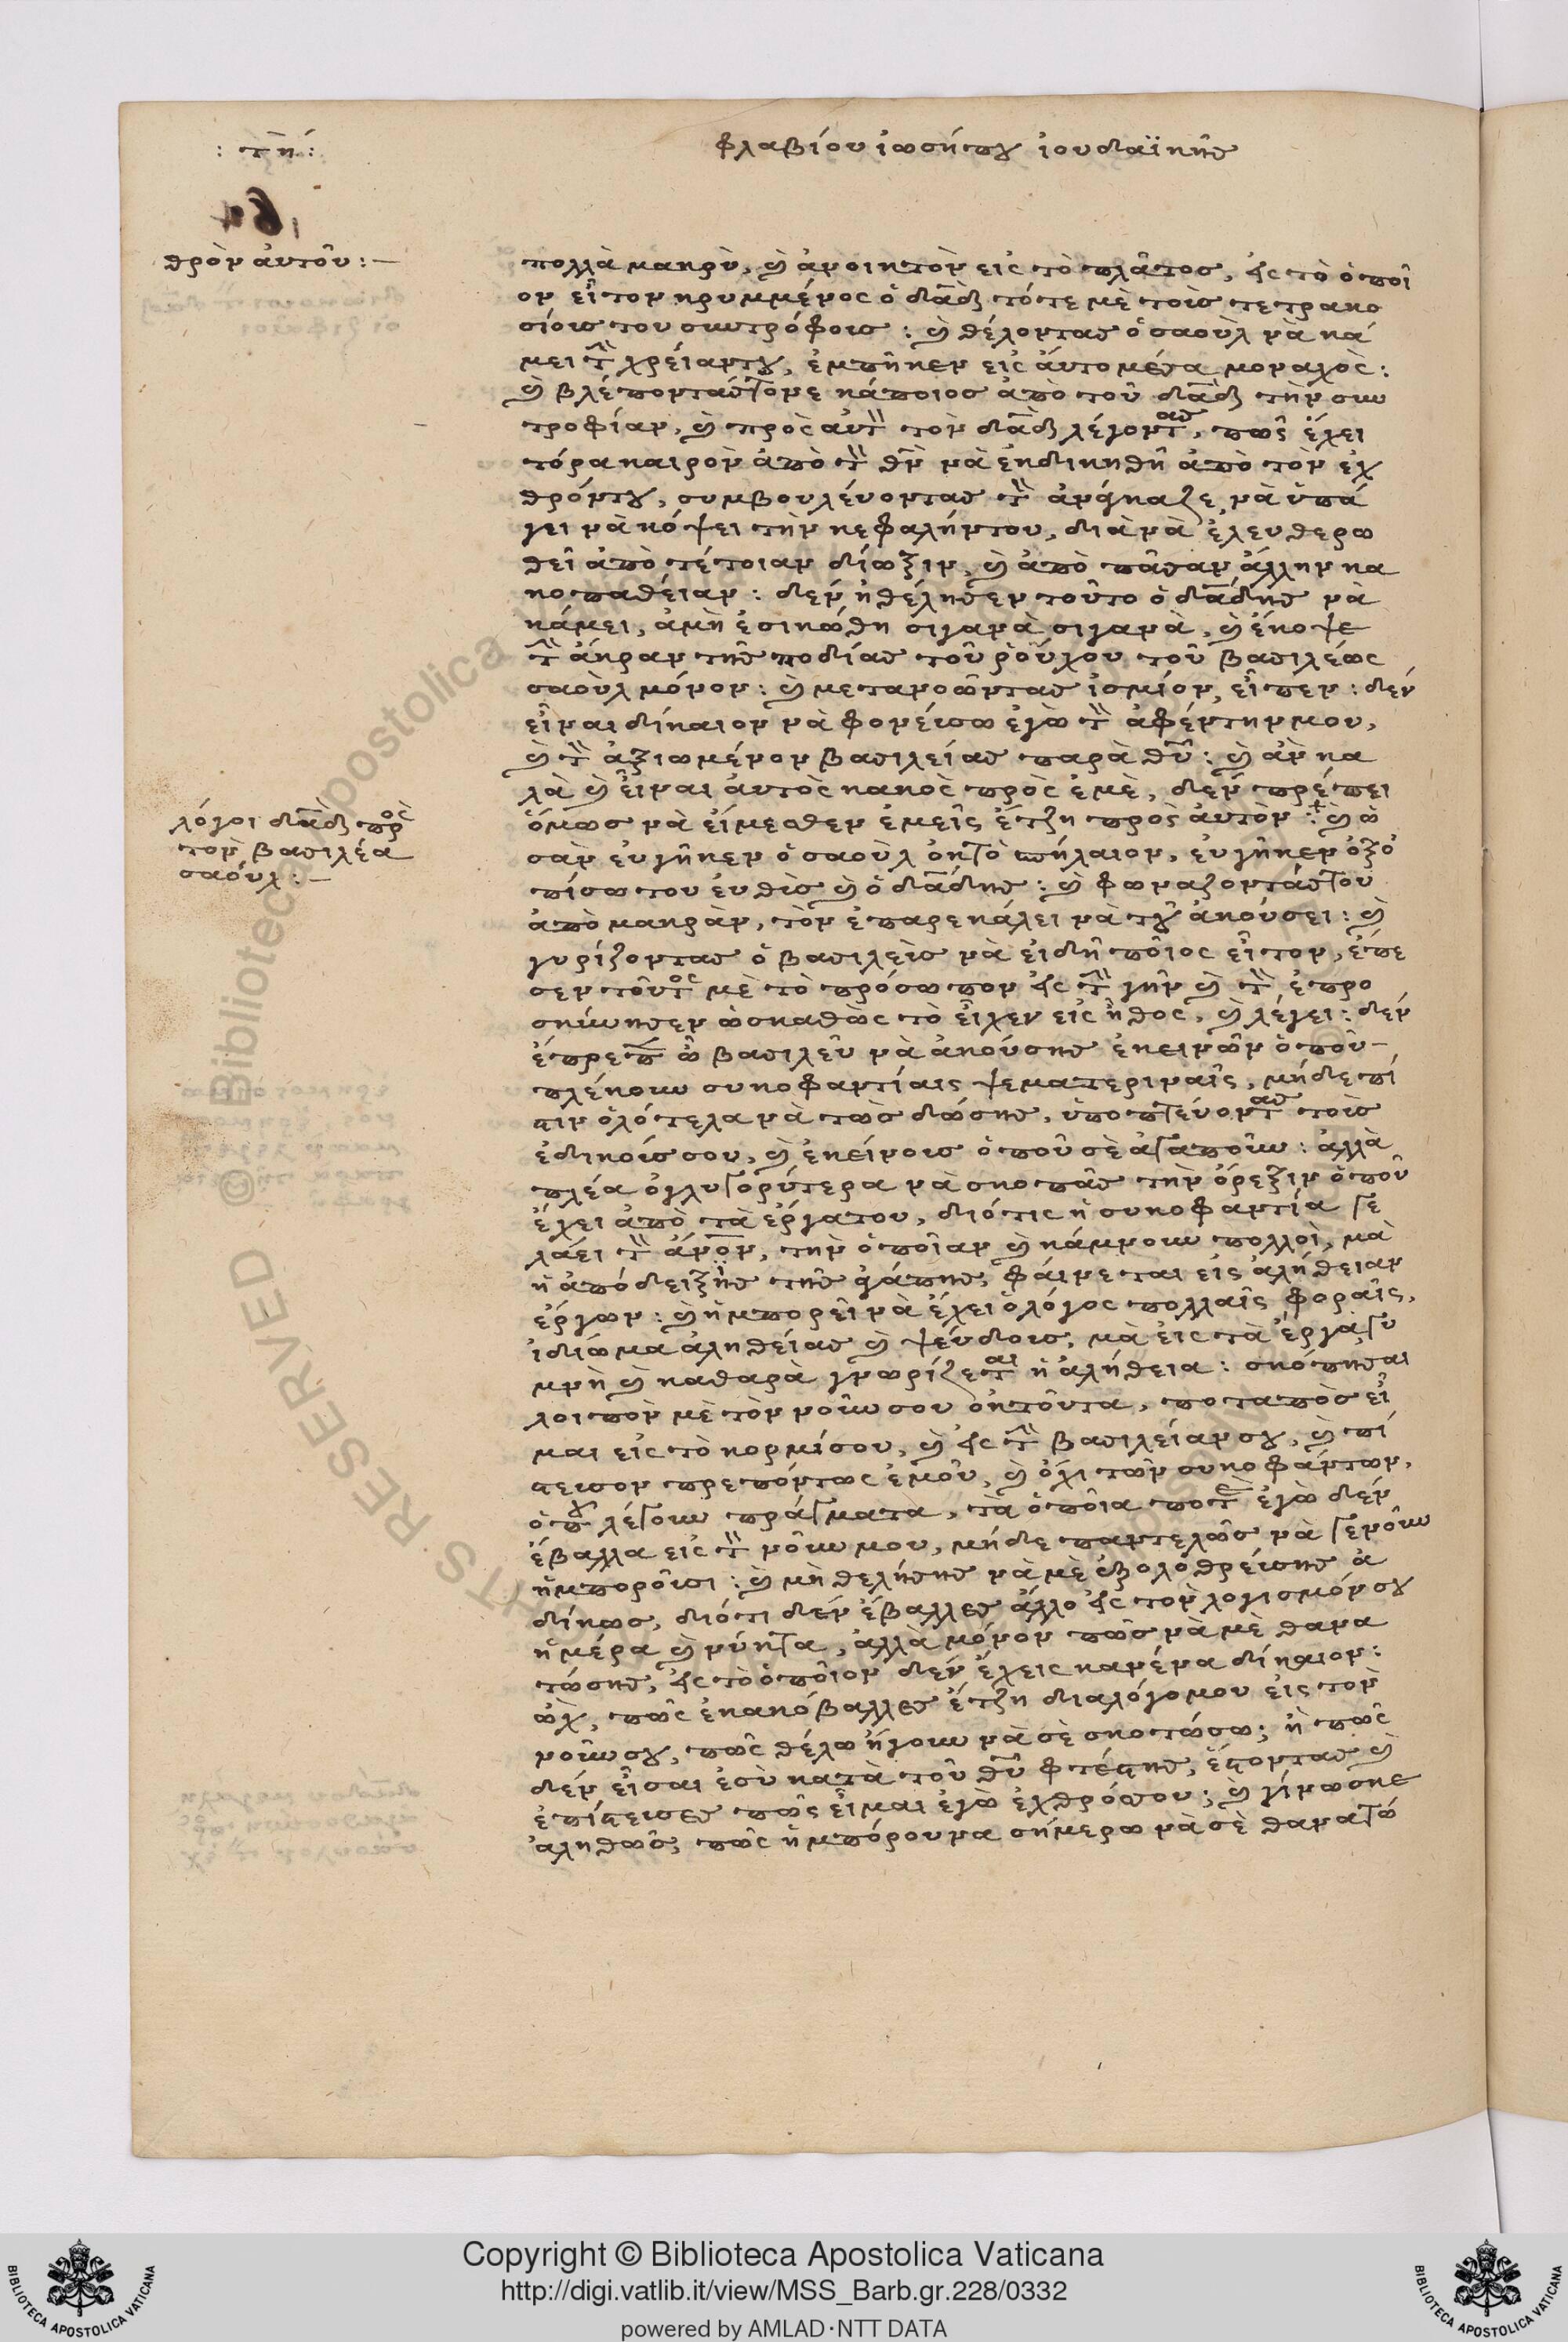 : τη :
φλαβίου ἰωσήπου ἰουδαϊκῆς
θρὸν ἀυτοῦ : —
πολλὰ μακρὺ, καὶ ἀνοικτὸν εἰς τὸ πλᾶτος, εἰς τὸ ὁποῖ
ον εἶτον κρυμμένος ὁ δαδ τότε μὲ τοὶς τετρακο
σίοις του συντρόφοις : καὶ θέλοντας ὁ σαοὺλ νὰ κά
μει τὴν χρείαντου, ἐμπῆκεν εἰς ἀυτο μέσα μοναχὸς :
καὶ βλέπονταστονε κάποιος ἀπὸ τοῦ δαδ τὴν συν
τροφίαν, καὶ πρὸς αὐτὸν τὸν δαδ λέγοντας, πῶς ἔχει
τόρα καιρὸν ἀπὸ τὸν θν νὰ ἐκδικηθῆ ἀπὸ τὸν ἐχ
θρόντου, συμβουλέυοντας τὸν νὰ ὑπά
γει νὰ κόψει τὴν κεφαλήντου, διὰ νὰ ἐλευθερω
θεῖ ἀπὸ τέτοιαν δίωξιν, καὶ ἀπὸ πᾶσαν ἄλλην κα
κοπαθείαν : δεν ἠθέλησεν τοῦτο ὁ δαδης νὰ
κάμει, ἀμὴ ἐσικώθη σιγανὰ σιγανὰ, καὶ ἔκοψε
τὴν ἄκραν τῆς ποδίας τοῦ ῥούχου τοῦ βασιλέως
σαοὺλ μόνον : καὶ μετανοῶντας ἰσμίον, εἶπεν : δεν
εἶναι δίκαιον νὰ φονέυσω ἐγὼ τὸν ἀφέντηνμου,
καὶ τὸν ἀξιωμένον βασιλείας παρὰ θυ : καὶ ἂν κα
λὰ καὶ εἶναι ἀυτὸς κακὸς πρὸς ἐμὲ, δεν πρέπει
λόγοι δαδ προς
τὸν βασιλέα
σαούλ : —
ὅμως νὰ εἴμεσθεν ἐμεῖς ἔτζη πρὸς ἀυτὸν : καὶ ὡ
σὰν ἐυγῆκεν ὁ σαοὺλ ὀκτὸ σπήλαιον, ἐυγῆκεν ὀξο
πίσω του ἐυθὶς καὶ ὁ δαδης : καὶ φωναζονταστου
ἀπὸ μακρὰν, τὸν ἐπαρεκάλει νὰ τοῦ ἀκούσει : καὶ
γυρίζοντας ὁ βασιλεὶς νὰ εἰδῆ ποῖος εἶτον, ἔπε
σεν τοῦτος μὲ τὸ πρόσωπον εἰς τὴν γῆν καὶ τὸν ἐπρο
σκύνησεν ὡσκαθὼς τὸ εἶχεν εἰς ἦθος, καὶ λέγει : δεν
ἔπρεπε ὦ βασιλεῦ νὰ ἀκούσης ἐκεινῶν ὁποῦ
πλέκουν συκοφαντίαις ψεματερικαῖς, μήδε πί
στιν ὁλότελα νὰ τῶς δώσης, ὑποπτέυοντας τοὶς
ἐδικόισσου, καὶ ἐκείνοις ὁποῦ σὲ ἀγαποῦν : ἀλλὰ
πλέα ὀγλυγορύτερα νὰ σκοπᾶς τὴν ὄρεξιν ὁποῦ
ἔχει ἀπὸ τὰ ἔργατου, διότις ἡ συκοφαντία γε
λάει τὸν ἄνον, τὴν ὁποῖαν καὶ κάμνουν πολλοὶ, μὰ
ἡ ἀπόδειξης τῆς ἀγάπης, φάινεται εἰς ἀλήθειαν
ἐργων : καὶ ἠμπορεῖ νὰ ἔχει ὁ λόγος πολλαῖς φοραῖς,
ἰδιώμα ἀληθείας καὶ ψέυδοις, μὰ εἰς τὰ ἔργα γυ
μνὴ καὶ καθαρὰ γνωρίζεται ἡ ἀλήθεια : σκόπησαι
λοιπὸν μὲ τὸν νοῦν σου ὀκτοῦτα, ποταπὸς εἶ
μαι εἰς τὸ κορμίσου, καὶ εἰς τὴν βασιλείαν σου, καὶ πί
στευσον πρεπόντως ἐμοῦ, καὶ ὄχι τῶν συκοφάντων,
ὁποῦ λέγουν πράγματα, τὰ ὁποῖα ποτε ἐγὼ δεν
ἔβαλλα εἰς τὸν νοῦν μου, μήδε παντελῶς νὰ γενοῦν
ἠμποροῦσι : καὶ μὴ θελήσης νὰ μὲ ἐξολοθρέυσης ἀ
δίκως, διότι δεν ἔβαλλες ἄλλο εἰς τὸν λογισμόν σου
ἡμέρα καὶ νύκτα, ἀλλὰ μόνον πῶς νὰ μὲ θανα
τώσης, εἰς τὸ ὁποῖον δεν ἔχεις κανένα δίκαιον :
ὢχ, πῶς ἐκακόβαλλες ἔτζη διαλόγομου εἰς τὸν
νοῦν σου, πῶς θέλω ἤγουν νὰ σὲ σκοτώσω; ἢ πῶς
δεν εἶσαι ἐσὺ κατὰ τοῦ θυ φτέστης, ἔστοντας καὶ
ἐπίστευσες πῶς εἶμαι ἐγὼ ἐχθρόσου; καὶ γίνωσκε
ἀληθῶς, πῶς ἠμπόρουνα σήμερω νὰ σὲ θανατώ
Copyright © Biblioteca Apostolica Vaticana
http://digi.vatlib.it/view/MSS_Barb.gr.228/0332
powered by AMLAD·NTT DATA